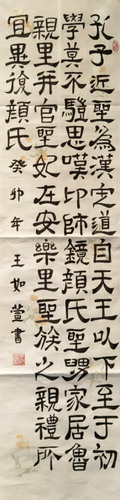 孔子近聖為漢定道自天王以下至于初
學莫不驥思嘆卬師鏡顏氏聖舅家居魯
親里并官聖妃在安樂里聖族之親禮所
宜異復顏氏 癸卯年 王如萱書